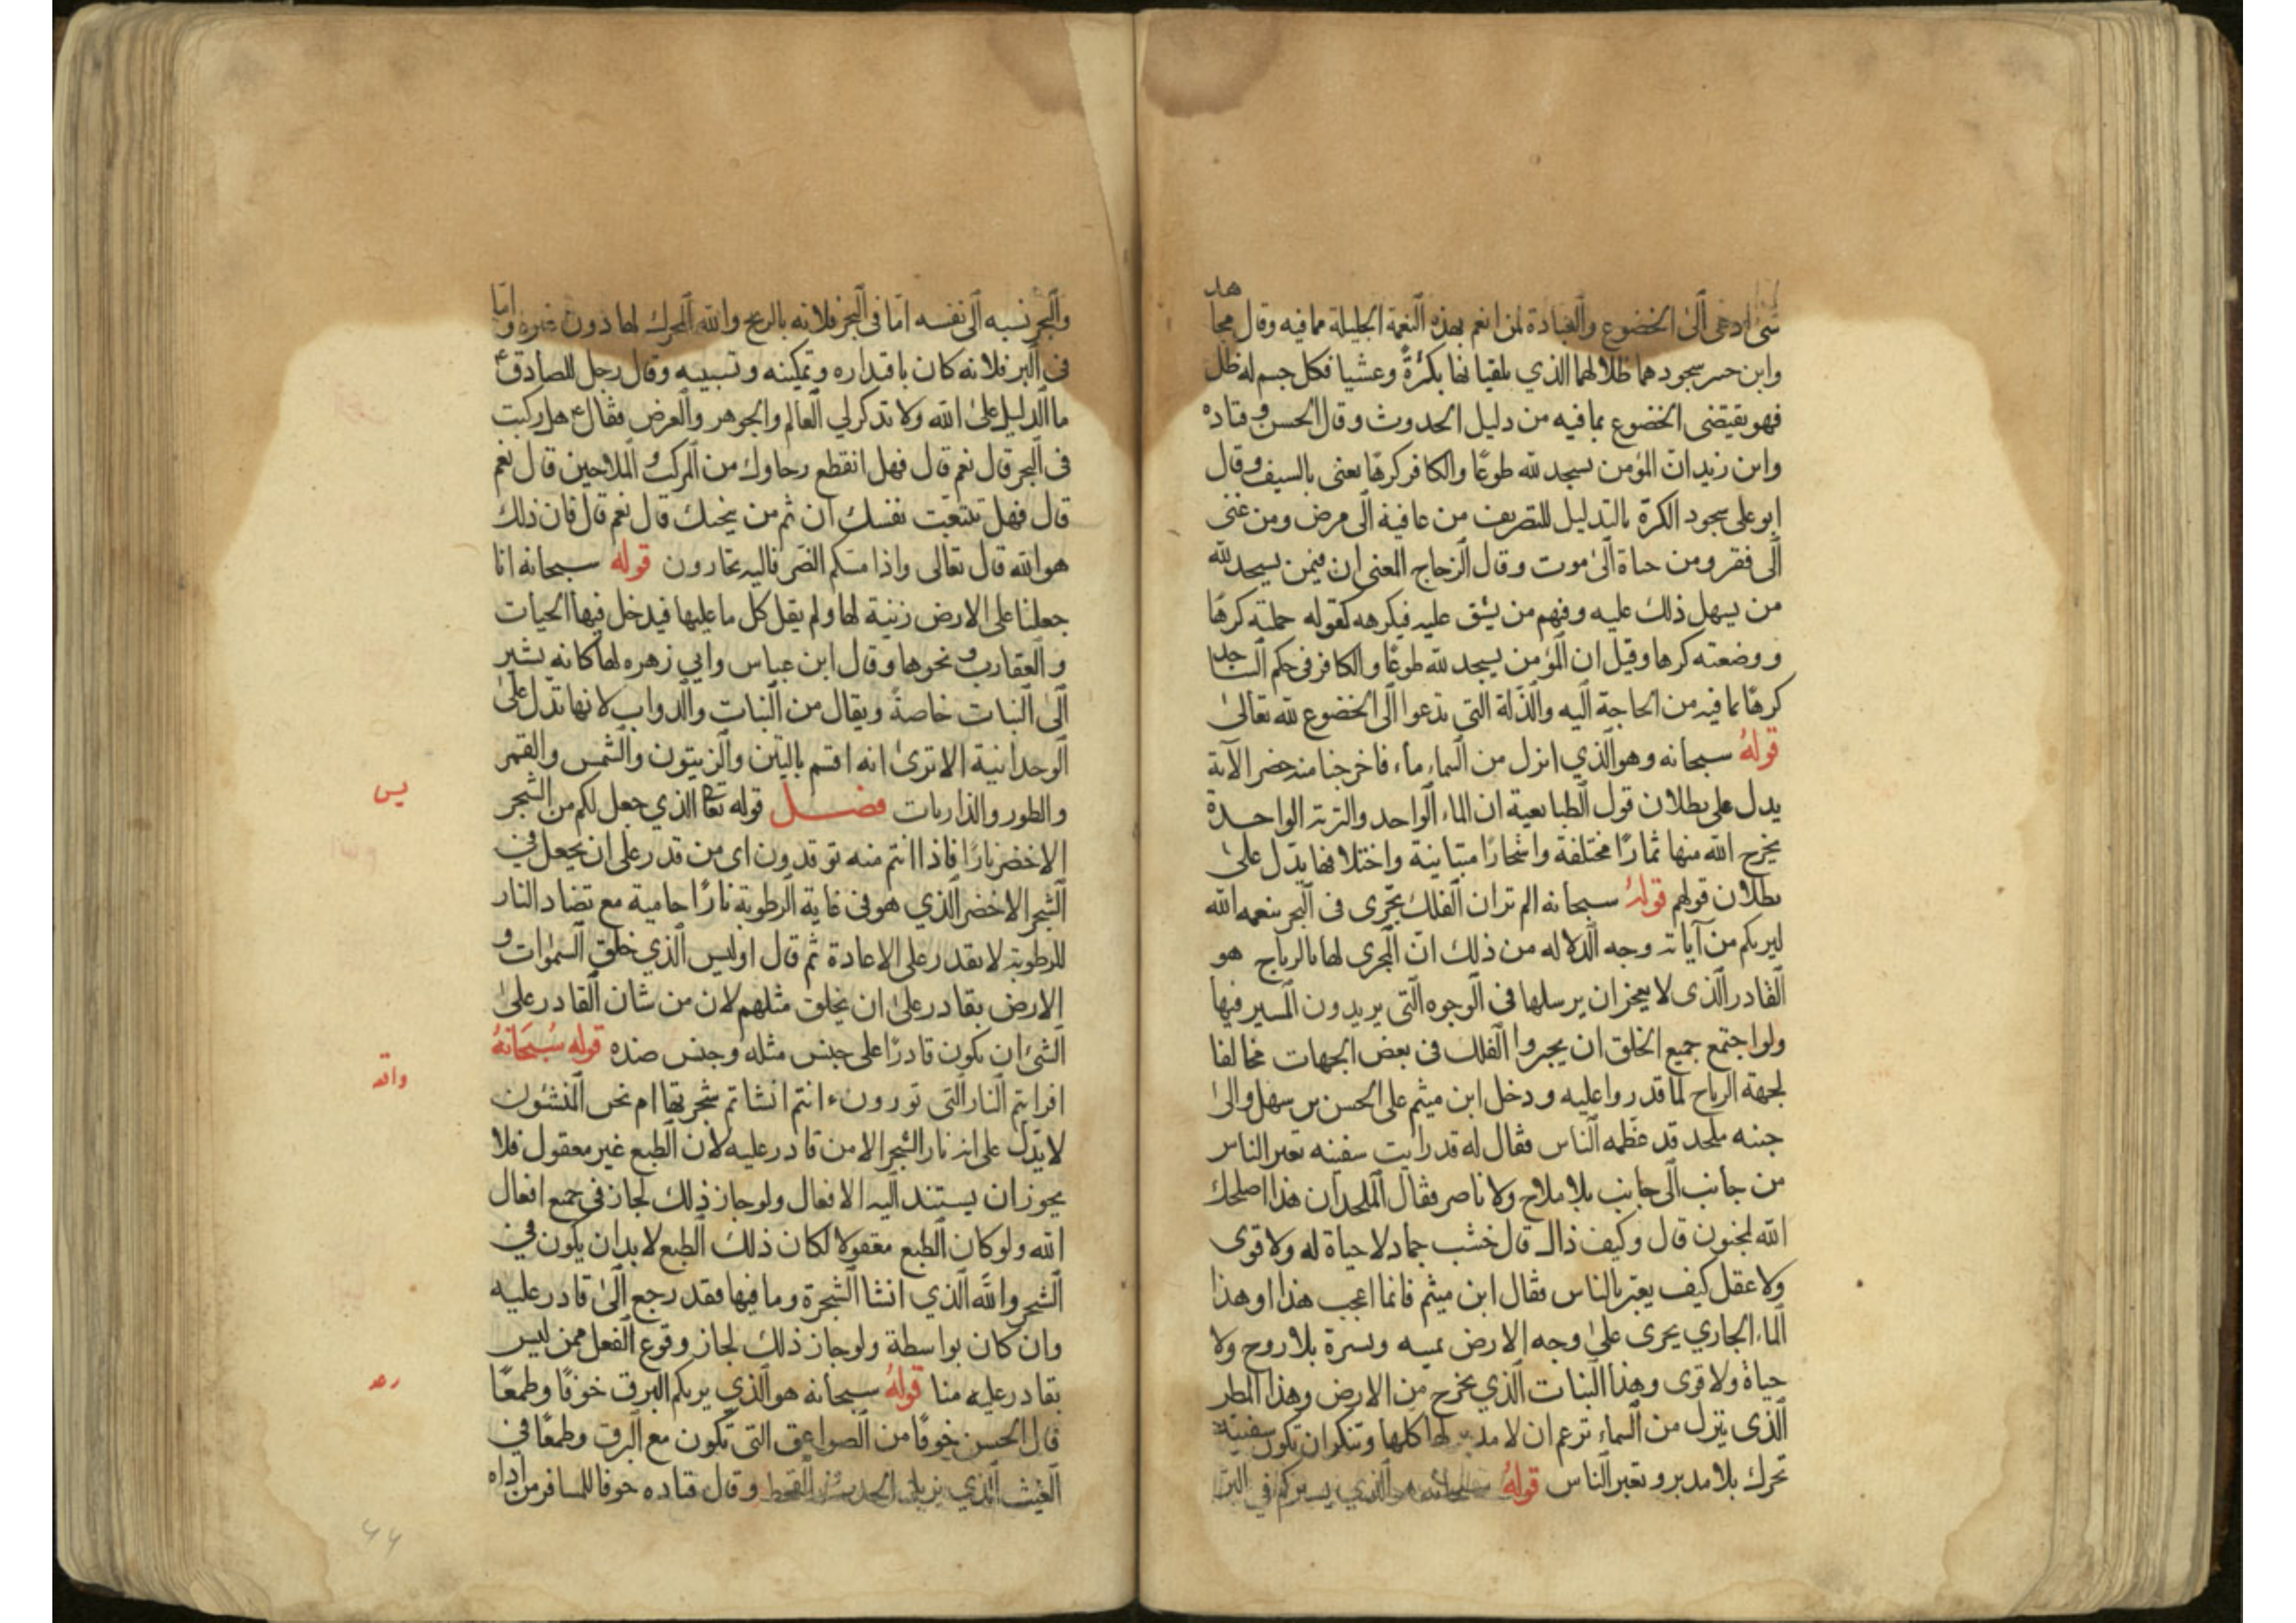 شئ ادعى الى الخضوع والعبادة لمن انعم بهذه النعمة الجليلة مما فيه وقال مجاهد
وابن حبر سجودهما ظلالهما الذي يلقيانها بكرة وعشيا فكل جسم له ظل
فهو يقتضى الخضوع بما فيه من دليل الحدوث وقال الحسن وقتاده
وابن زيد ان المؤمن يسجد لله طوعًا والكافر كرهًا يعنى بالسيف وقال
ابو على سجود الكرة بالتدليل للتصريف من عافية الى مرض ومن غنى
الى فقر ومن حياة الى موت وقال الزجاج المعنى ان فيمن يسجد لله
من يسهل ذلك عليه وفيهم من يشق عليه فيكرهه كقوله حملته كرهًا
ووضعته كرها وقيل ان المؤمن يسجد لله طوعًا والكافر فى حكم الساجد
كرهًا بما فيه من الحاجة اليه والذلة التي تدعوا الى الخضوع لله تعالى
قوله سبحانه وهو الذي انزل من السماء ماء فاخرجنا منه خضر الآية
يدل على بطلان قول الطبايعية ان الماء الواحد والتربة الواحدة
يخرج الله منها ثمارًا مختلفة واشجارًا متباينة واختلافها يدل على
بطلان قولهم قوله سبحانه الم تر ان الفلك تجرى فى البحر بنعمه الله
ليريكم من آياته وجه الدلاله من ذلك ان المجرى لها بالرياح هو
القادر الذى لا يعجز ان يرسلها فى الوجوه التى يريدون المسير فيها
ولو اجتمع جميع الخلق ان يجروا الفلك فى بعض الجهات مخالفا
لجهة الرياح لما قدروا عليه ودخل ابن ميثم على الحسن بن سهل والى
جنبه ملحد قد عظمه الناس فقال له قد رايت سفينه تعبر الناس
من جانب الى جانب بلا ملاح ولا ناصر فقال الملحد ان هذا اصلحك
الله لمجنون قال وكيف ذاك قال خشب جماد لا حياة له ولا قوى
ولا عقل كيف يعبر بالناس فقال ابن ميثم فانما اعجب هذا او هذا
الماء الجاري يجرى على وجه الارض يمينه ويسرة بلا روح ولا
حياة ولا قوى وهذا النبات الذي يخرج من الارض وهذا المطر
الذى ينزل من السماء تزعم ان لا مدبر لها كلها وتنكر ان تكون سفينة
تحرك بلا مدبر وتعبر الناس قوله سبحانه هو الذي يسيركم في البر
والبحر نسبه الى نفسه اما فى البحر فلانه بالريح والله المحرك لها دون غيره واما
فى البر فلانه كان باقداره وتمكينه وتسبيبه وقال رجل للصادق ع
ما الدليل على الله ولا تذكر لي العالم والجوهر والعرض فقال ع هل ركبت
فى البحر قال نعم قال فهل انقطع رجاوك من المركب والملاحين قال نعم
قال فهل تتبعت نفسك ان ثم من ينجيك قال نعم قال فان ذلك
هو الله قال تعالى واذا مسكم الضر فاليه تجارون قوله سبحانه انا
جعلنا على الارض زينة لها ولم يقل كل ما عليها فيدخل فيها الحيات
والعقارب ونحوها وقال ابن عباس وابي زهره لها كانه يشير
الى النبات خاصة ويقال من النبات والدواب لانها تدل على
الوحدانية الا ترى انه اقسم بالتين والزيتون والشمس والقمر
والطور والذاريات فصل قوله تعا الذي جعل لكم من الشجر
الاخضر نارًا فاذا انتم منه توقدون اى من قدر على ان يجعل في
الشجر الاخضر الذي هو فى غاية الرطوبة نارًا حامية مع تضاد النار
للرطوبة لا يقدر على الاعادة ثم قال اوليس الذي خلق السموات و
الارض بقادر على ان يخلق مثلهم لان من شان القادر على
الشئ ان يكون قادرًا على جنس مثله وجنس ضده قوله سبحانه
افرايتم النار التى تورون ء انتم انشاتم شجرتها ام نحن المنشئون
لا يدل على انه نار الشجر الا من قادر عليه لان الطبع غير معقول فلا
يجوز ان يستند اليه الافعال ولو جاز ذلك لجاز في جميع افعال
الله ولو كان الطبع معقولا لكان ذلك الطبع لا بد ان يكون في
الشجر والله الذي انشا الشجرة وما فيها فقد رجع الى قادر عليه
وان كان بواسطة ولو جاز ذلك لجاز وقوع الفعل ممن ليس
بقادر عليه منا قوله سبحانه هو الذي يريكم البرق خوفًا وطمعًا
قال الحسن خوفًا من الصواعق التى تكون مع البرق وطمعًا في
الغيث الذي يزيل الجدب والقحط وقال قتاده خوفا للمسافر من اذاه
يس
واقه
رعد